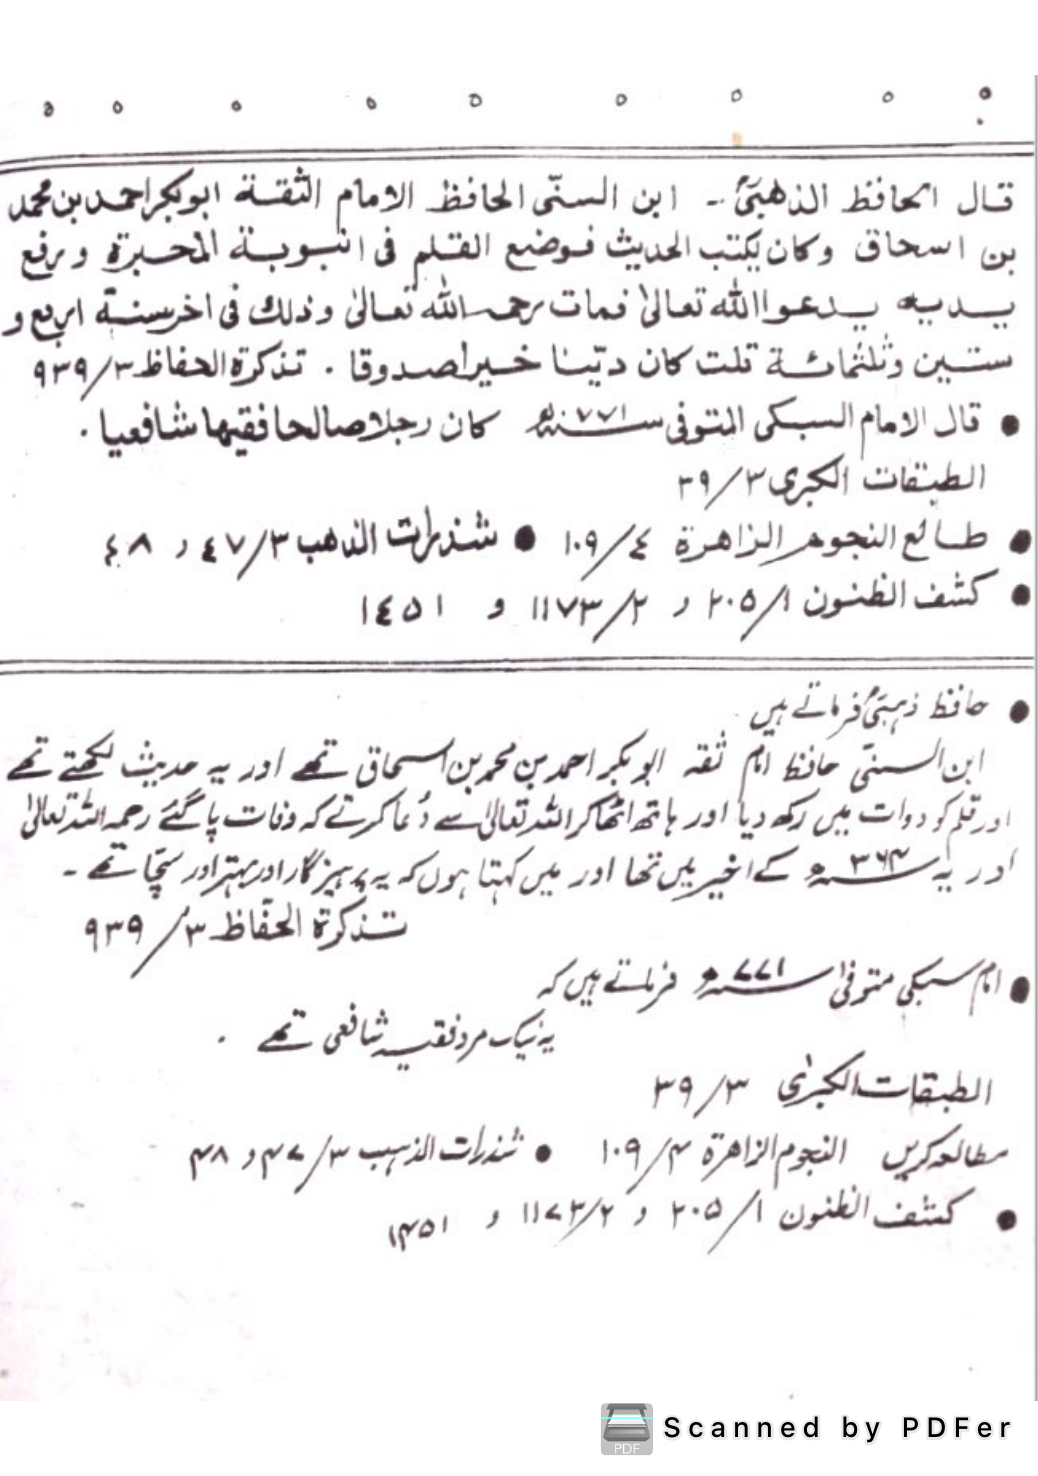 قال الحافظ الذهبیؒ ۔ ابن السنّی الحافظ الامام الثقة ابوبکر احمد بن محمد
بن اسحاق وکان یکتب الحدیث فوضع القلم فی انبوبة المحبرة ورفع
یدیه یدعوا الله تعالیٰ فمات رحمه الله تعالیٰ وذلك فی اخر سنة اربع و
ستین وثلثمائة قلت کان دیّنا خیرا صدوقا . تذکرة الحفاظ ٣/٩٣٩
● قال الامام السبکی المتوفی سنة ٧٧١ه کان رجلا صالحا فقیها شافعیا .
الطبقات الکبری ٣/٣٩
● طالع النجوم الزاهرة ٤/١٠٩ ● شذرات الذهب ٣/٤٧ و ٤٨
● کشف الظنون ١/٢٠٥ و ٢/١١٧٣ و ١٤٥١
● حافظ ذہبیؒ فرماتے ہیں
ابن السنیّ حافظ امام ثقہ ابوبکر احمد بن محمد بن اسحاق تھے اور یہ حدیث لکھتے تھے
اور قلم کو دوات میں رکھ دیا اور ہاتھ اٹھا کر اللہ تعالیٰ سے دُعا کرتے کہ وفات پا گئے رحمہ اللہ تعالیٰ
اور یہ سنہ ۳۶۴ھ کے اخیر میں تھا اور میں کہتا ہوں کہ یہ پرہیزگار اور بہتر اور سچّا تھے ۔
تذکرة الحفّاظ ۳/۹۳۹
● امام سبکی متوفیٰ سنہ ۷۷۱ھ فرماتے ہیں کہ
یہ نیک مرد فقیہ شافعی تھے .
الطبقات الکبریٰ ۳/۳۹
مطالعہ کریں النجوم الزاهرة ۴/۱۰۹ ● شذرات الذہب ۳/۴۷ و ۴۸
● کشف الظنون ۱/۲۰۵ و ۲/۱۱۷۳ و ۱۴۵۱
PDF Scanned by PDFer